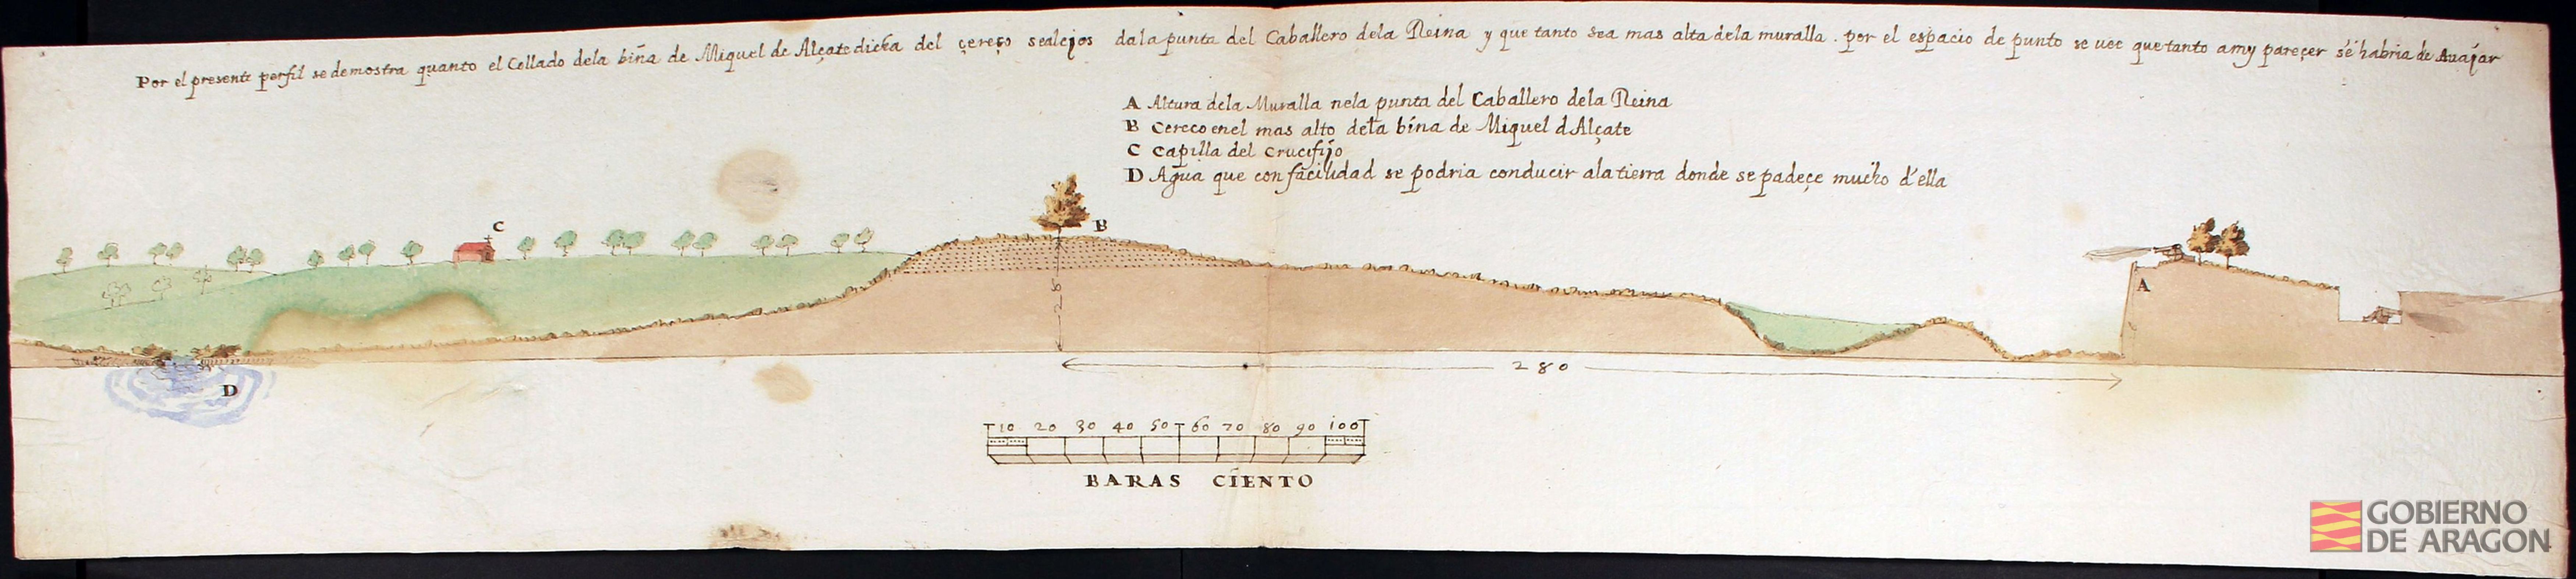 Por el presente perfil se demostra quanto el Collado dela biña de Miquel de Alçate dicha del çereço sealejos dala punta del Caballero dela Reina y que tanto sea mas alta dela muralla. por el espacio de punto se vee que tanto a my pareçer se habria de Auajar
A Altura dela Muralla nela punta del Caballero dela Reina
B Cereco enel mas alto dela bína de Miquel d Alçate
C Capilla del Crucifijo
D Agua que con facilidad se podria conducir ala tierra donde se padeçe mucho d'ella
C
B
28
A
D
280
10 20 30 40 50 60 70 80 90 100
BARAS CIENTO
GOBIERNO
DE ARAGON